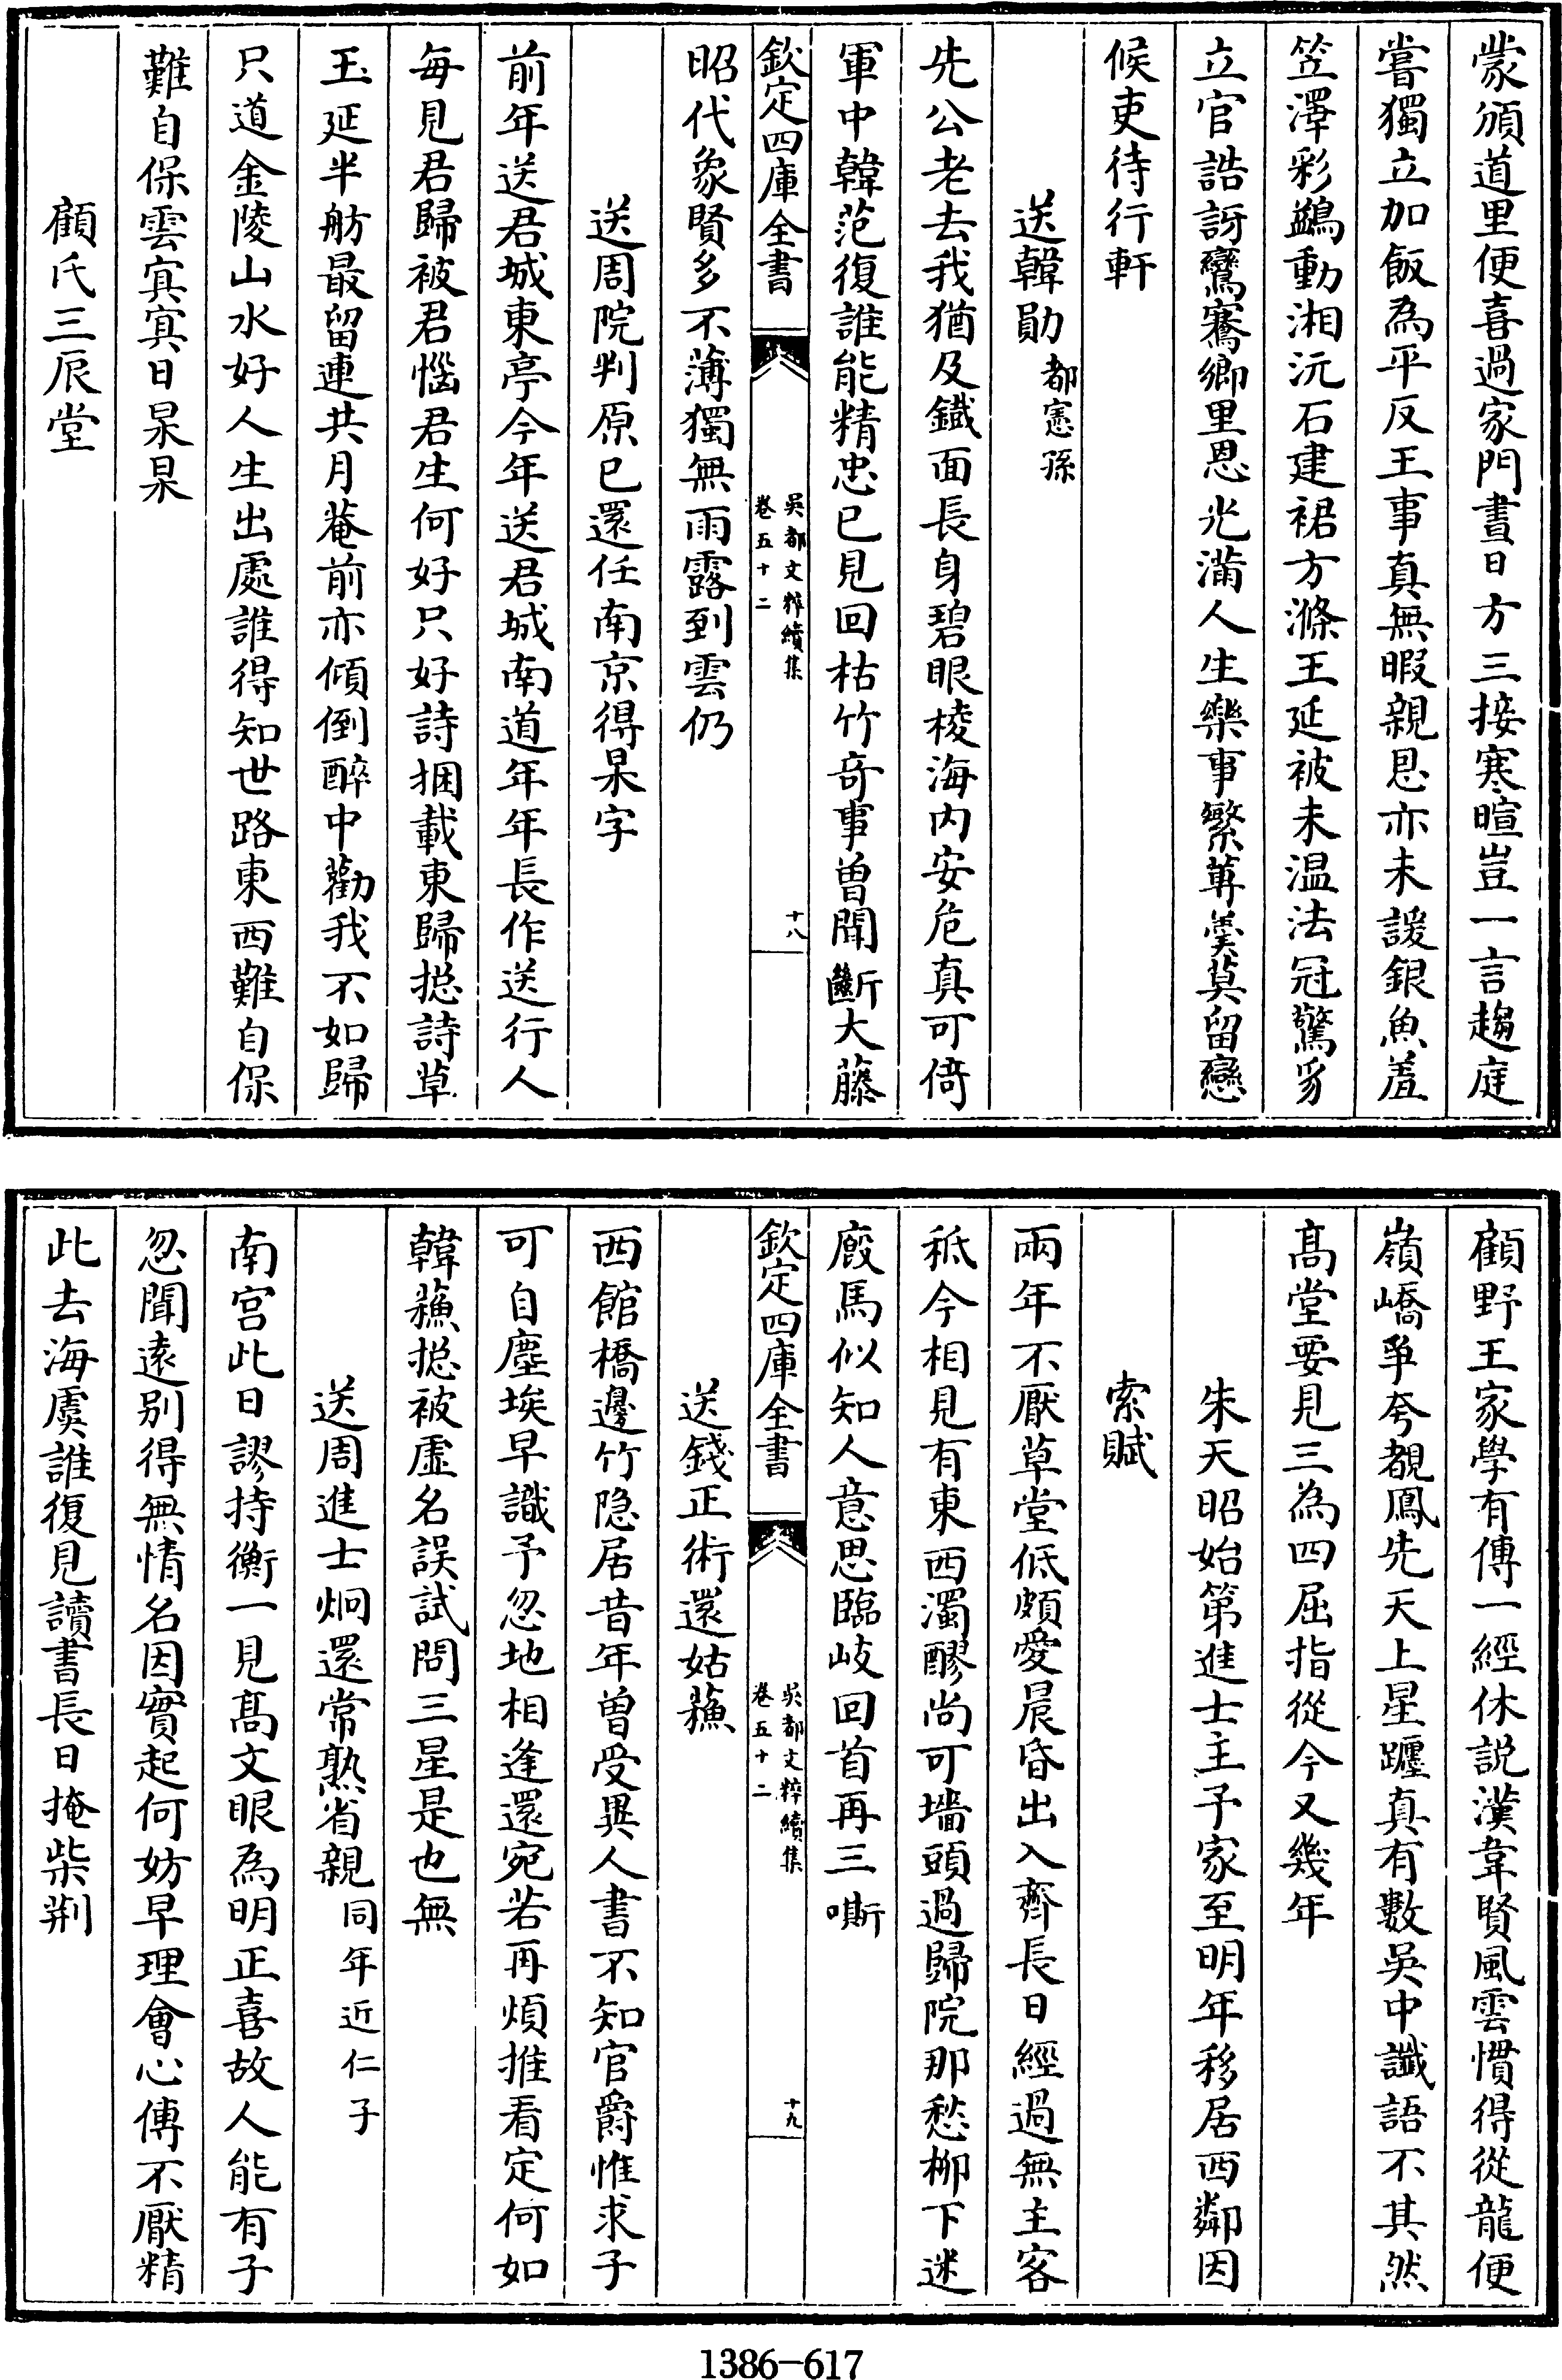 蒙頒道里便喜過家門晝日方三接寒暄豈一言趨庭
嘗獨立加飯為平反王事真無暇親恩亦未諼銀魚羞
笠澤彩鷁動湘沅石建裙方滌王延被未温法冠驚豸
立官誥訝鸞騫鄉里恩光滿人生樂事繁蓴羮莫留戀
候吏待行軒
送韓勛都憲孫
先公老去我猶及鐵面長身碧眼棱海内安危真可倚
軍中韓范復誰能精忠已見回枯竹奇事曽聞斷大藤
欽定四庫全書
吳都文粹續集
卷五十二
十八
昭代象賢多不薄獨無雨露到雲仍
送周院判原已還任南京得杲字
前年送君城東亭今年送君城南道年年長作送行人
每見君歸被君惱君生何好只好詩捆載東歸捴詩草
玉延半舫最留連共月菴前亦傾倒醉中勸我不如歸
只道金陵山水好人生出處誰得知世路東西難自保
難自保雲㝠㝠日杲杲
顧氏三辰堂
顧野王家學有傳一經休説漢韋賢風雲慣得從龍便
嶺嶠爭夸覩鳳先天上星躔真有數吳中讖語不其然
髙堂要見三為四屈指從今又幾年
朱天昭始第進士主予家至明年移居西鄰因
索賦
兩年不厭草堂低頗愛晨昏出入齊長日經過無主客
秪今相見有東西濁醪尚可墻頭過歸院那愁柳下迷
廐馬似知人意思臨岐回首再三嘶
欽定四庫全書
吳都文粹續集
卷五十二
十九
送錢正術還姑蘓
西館橋邊竹隐居昔年曽受異人書不知官爵惟求子
可自塵埃早識予忽地相逢還宛若再煩推看定何如
韓蘓捴被虚名誤試問三星是也無
送周進士炯還常熟省親同年近仁子
南宫此日謬持衡一見髙文眼為明正喜故人能有子
忽聞遠别得無情名因實起何妨早理會心傳不厭精
此去海虞誰復見讀書長日掩柴荆
1386-617